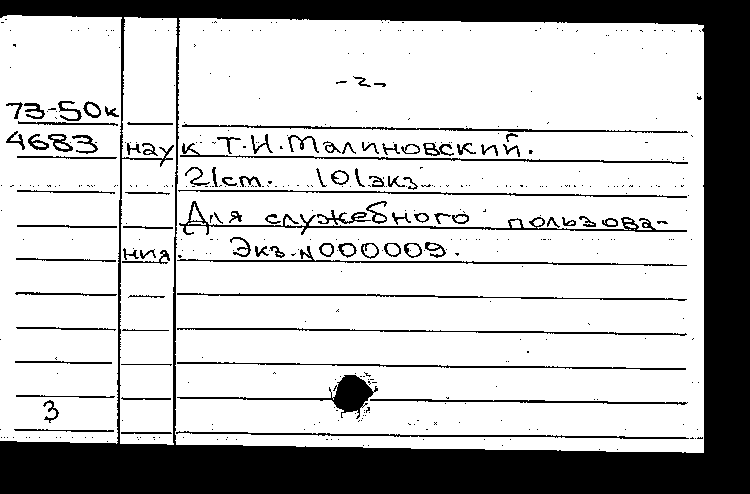 -2-
73-50к
4683 наук Т.И.Малиновский.
21ст. 101экз
Для служебного пользова-
ния. Экз.№000009.
3